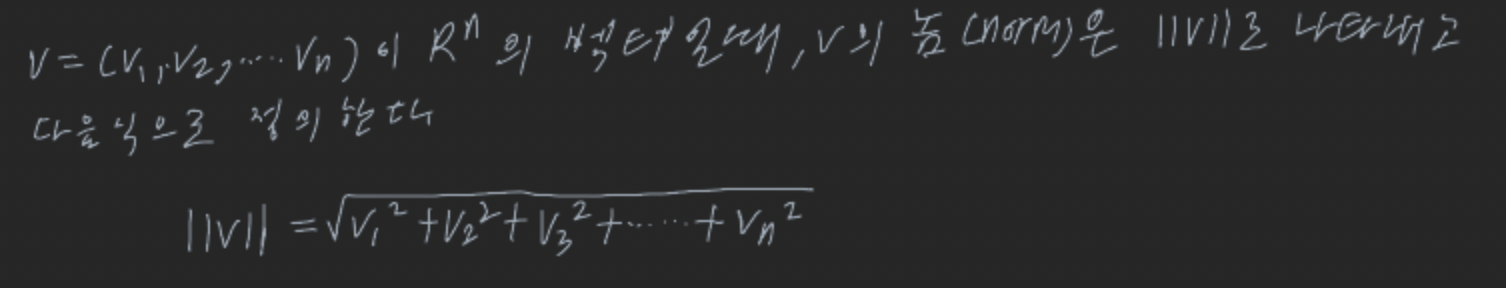 v = (v₁, v₂, ..... vₙ) 이 Rⁿ 의 벡터 일때, v의 놈 (norm)은 ||v||로 나타내고
다음식으로 정의 한다
||v|| = √(v₁² + v₂² + v₃² + ...... + vₙ²)